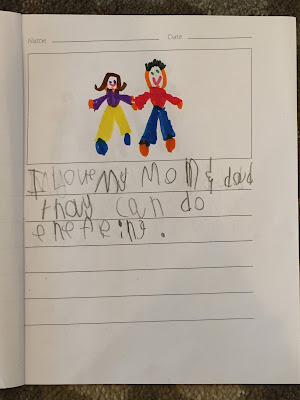 Name Date
I Love My MOM & dad
thay can do
enething.